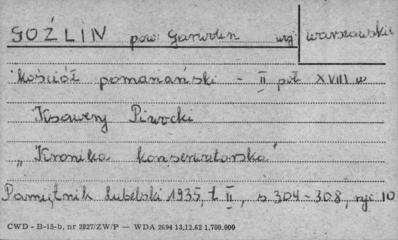 GOŹLIN pow: Garwolin woj: warszawskie
Kościół pomariański - II poł XVIII w
Ksawery Piwocki
„Kronika konserwatorska"
Pamiętnik Lubelski 1935, t II, s 304-308, ryc 10
CWD - B-15-b, nr 2827/ZW/P — WDA 2694 13.12.62 1.700.000